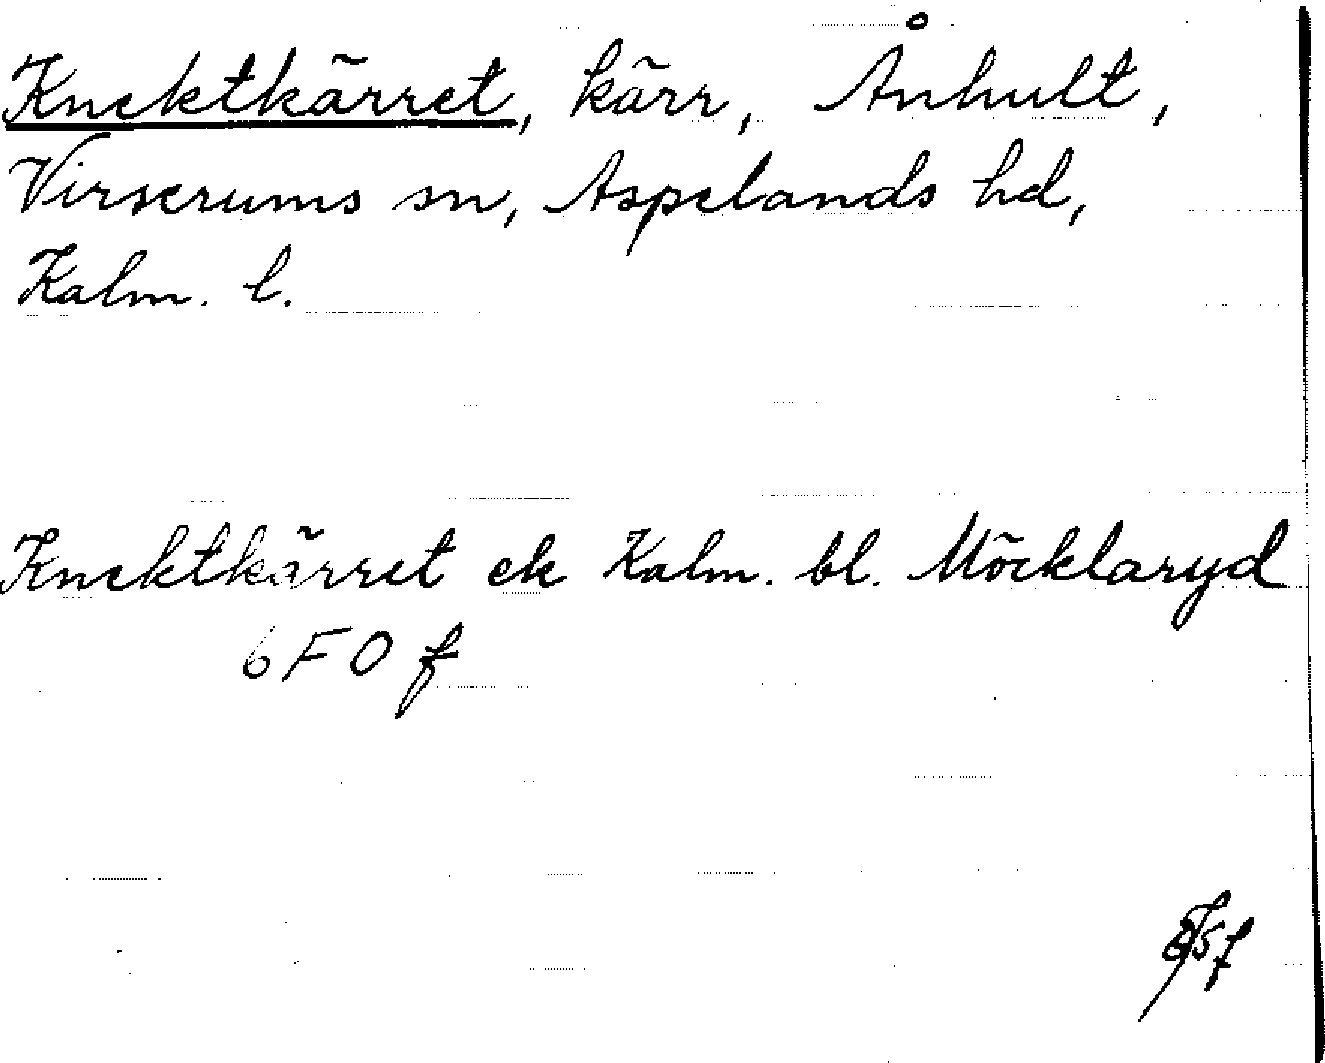 Knektkärret, kärr, Ånhult,
Virserums sn, Aspelands hd,
Kalm. l.
Knektkärret ek Kalm. bl. Möcklaryd
6 F O f